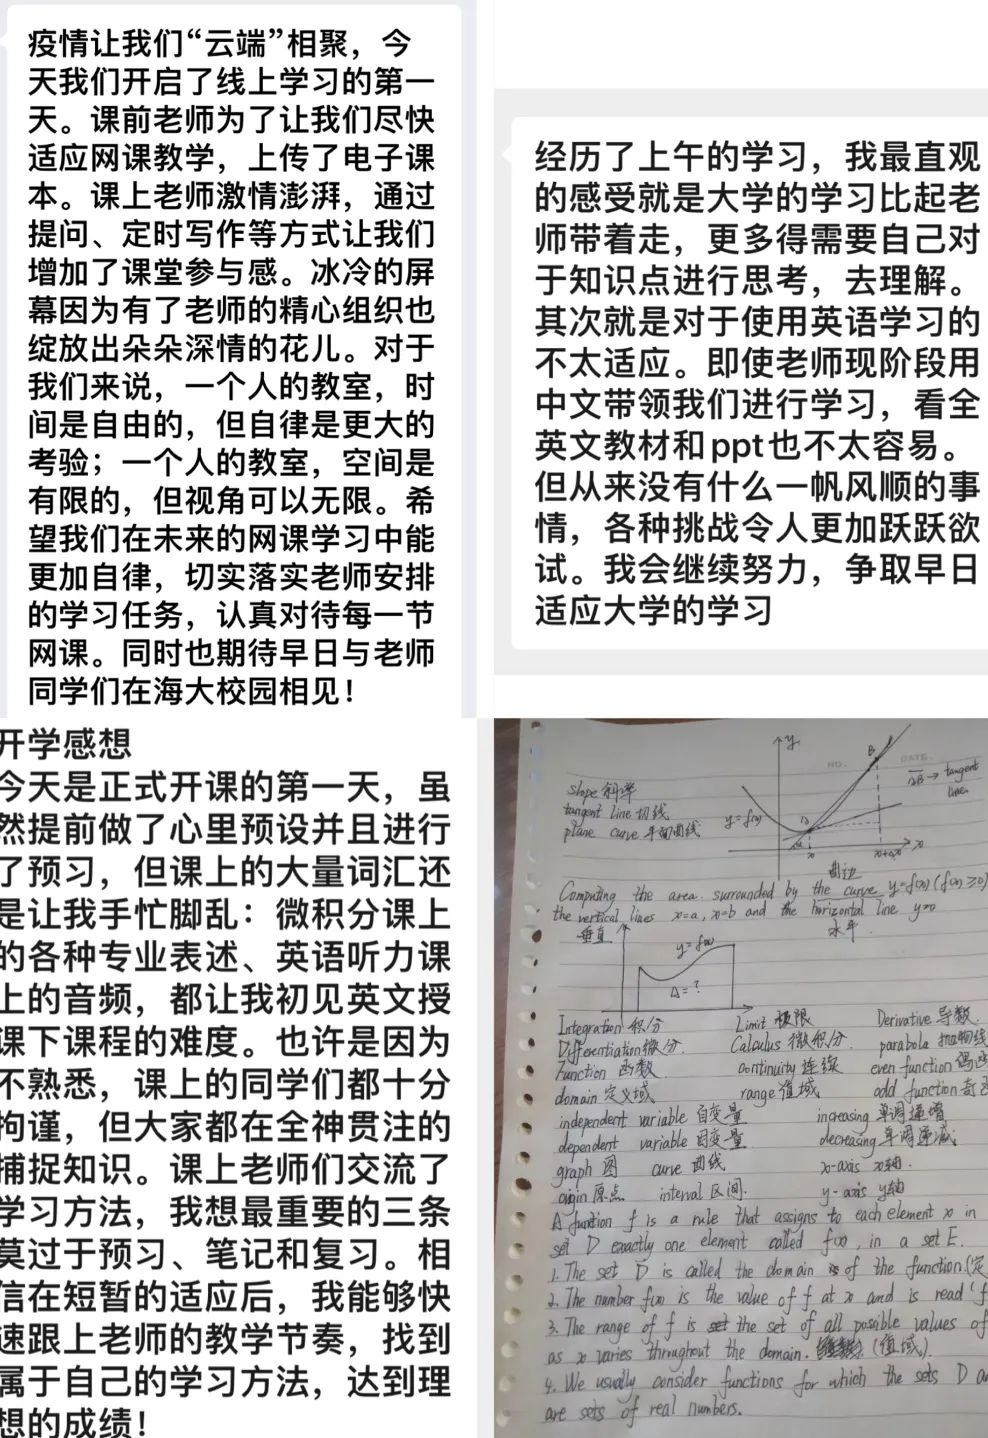 疫情让我们“云端”相聚，今
天我们开启了线上学习的第一
天。课前老师为了让我们尽快
适应网课教学，上传了电子课
本。课上老师激情澎湃，通过
提问、定时写作等方式让我们
增加了课堂参与感。冰冷的屏
幕因为有了老师的精心组织也
绽放出朵朵深情的花儿。对于
我们来说，一个人的教室，时
间是自由的，但自律是更大的
考验；一个人的教室，空间是
有限的，但视角可以无限。希
望我们在未来的网课学习中能
更加自律，切实落实老师安排
的学习任务，认真对待每一节
网课。同时也期待早日与老师
同学们在海大校园相见！
经历了上午的学习，我最直观
的感受就是大学的学习比起老
师带着走，更多得需要自己对
于知识点进行思考，去理解。
其次就是对于使用英语学习的
不太适应。即使老师现阶段用
中文带领我们进行学习，看全
英文教材和ppt也不太容易。
但从来没有什么一帆风顺的事
情，各种挑战令人更加跃跃欲
试。我会继续努力，争取早日
适应大学的学习
开学感想
今天是正式开课的第一天，虽
然提前做了心里预设并且进行
了预习，但课上的大量词汇还
是让我手忙脚乱：微积分课上
的各种专业表述、英语听力课
上的音频，都让我初见英文授
课下课程的难度。也许是因为
不熟悉，课上的同学们都十分
拘谨，但大家都在全神贯注的
捕捉知识。课上老师们交流了
学习方法，我想最重要的三条
莫过于预习、笔记和复习。相
信在短暂的适应后，我能够快
速跟上老师的教学节奏，找到
属于自己的学习方法，达到理
想的成绩！
NO. DATE.
y
B
AB → tangent
line
slope 斜率
tangent line 切线
plane curve 平面曲线
y=f(x)
x
x+Δx
x
曲边
Computing the area surrounded by the curve y=f(x) (f(x)≥0)
the vertical lines x=a, x=b and the horizontal line y=0
垂直
水平
y=f(x)
A=?
Integration 积分 Limit 极限 Derivative 导数
Differentiation 微分 Calculus 微积分 parabola 抛物线
Function 函数 continuity 连续 even function 偶函
domain 定义域 range 值域 odd function 奇
independent variable 自变量 increasing 单调递增
dependent variable 因变量 decreasing 单调递减
graph 图 curve 曲线 x-axis x轴
origin 原点 interval 区间 y-axis y轴
A function f is a rule that assigns to each element x in
set D exactly one element called f(x), in a set E.
1. The set D is called the domain of the function (定
2. The number f(x) is the value of f at x and is read 'f
3. The range of f is the set of all possible values of
as x varies throughout the domain. (值域).
4. We usually consider functions for which the sets D
are sets of real numbers.